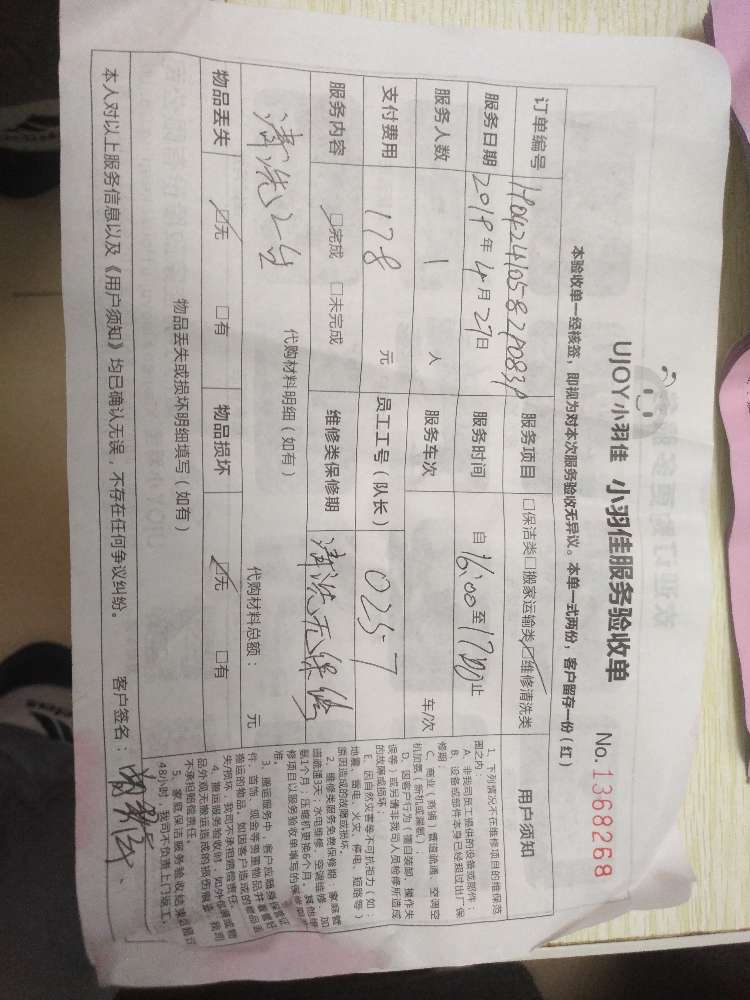 UJOY小羽佳 小羽佳服务验收单
No. 1368268
本验收单一经核签，即视为对本次服务验收无异议。本单一式两份，客户留存一份（红）
订单编号
服务项目 □保洁类□搬家运输类☑维修清洗类
服务日期 2019年4月27日 服务时间 自16:00至1700止
服务人数 1 人 服务车次 车/次
支付费用 178 元 员工工号（队长） 0257
服务内容 ☑完成 □未完成 维修类保修期 清洗无保修
清洗
代购材料明细（如有） 代购材料总额： 元
物品丢失 ☑无 □有 物品损坏 ☑无 □有
物品丢失或损坏明细填写（如有）
本人对以上服务信息以及《用户须知》均已确认无误，不存在任何争议纠纷。 客户签名：
用户须知
1、下列情况不在维修项目的维保范
围之内：
A、非我司员工提供的设备或部件；
B、设备或部件本身已经超过出厂保
修期；
C、商业（商铺）管道疏通、空调空
机加氟（新机或漏氟）；
D、因客户行为（擅自装卸、操作失
误等）或另请非我司人员检修所造成
的故障或损坏；
E、因自然灾害等不可抗拒力（如：
地震、雷电、火灾、停电、短路等）
原因造成的故障或损坏。
2、维修类服务免费保修期：家庭管
道疏通3天；水电维修、空调维修、加
氟1个月；压缩机更换6个月。其他维
修项目以服务验收单填写的保修期为
准。
3、搬运服务中，客户应随身保管证
件、首饰、现金等贵重物品并看管好
搬运的物品，如因客户造成的物品丢
失/损坏，我司不承担赔偿责任。
4、搬运服务验收时，如外包装或物
品外观无搬运造成的损伤痕迹，我司
不承担赔偿责任。
5、家庭保洁服务验收结束后超过
48小时，我司不负责上门返工。